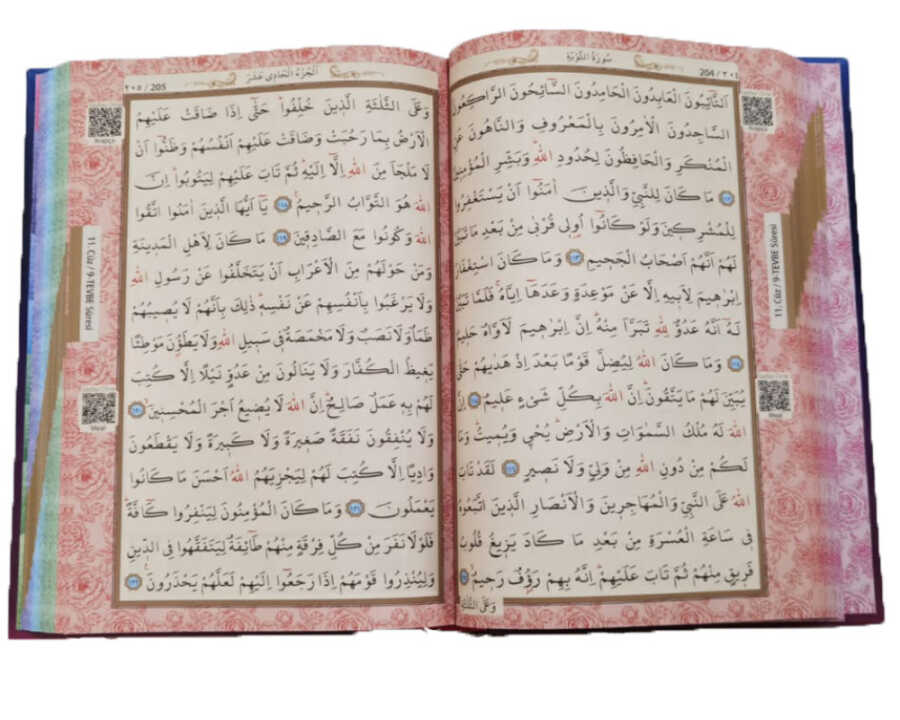 204 / ٢٠٤
سُورَةُ التَّوْبَةِ
اَلتَّٓائِبُونَ الْعَابِدُونَ الْحَامِدُونَ السَّٓائِحُونَ الرَّاكِعُونَ
السَّاجِدُونَ الْاٰمِرُونَ بِالْمَعْرُوفِ وَالنَّاهُونَ عَنِ
الْمُنْكَرِ وَالْحَافِظُونَ لِحُدُودِ اللّٰهِ وَبَشِّرِ الْمُؤْمِنِينَ
١١٢ مَا كَانَ لِلنَّبِيِّ وَالَّذِينَ اٰمَنُٓوا اَنْ يَسْتَغْفِرُوا
لِلْمُشْرِكِينَ وَلَوْ كَانُٓوا اُولِي قُرْبٰى مِنْ بَعْدِ مَا تَبَيَّنَ
لَهُمْ اَنَّهُمْ اَصْحَابُ الْجَحِيمِ ١١٣ وَمَا كَانَ اسْتِغْفَارُ
اِبْرٰهِيمَ لِاَبِيهِ اِلَّا عَنْ مَوْعِدَةٍ وَعَدَهَٓا اِيَّاهُۚ فَلَمَّا تَبَيَّنَ
لَهُٓ اَنَّهُ عَدُوٌّ لِلّٰهِ تَبَرَّاَ مِنْهُۜ اِنَّ اِبْرٰهِيمَ لَاَوَّاهٌ حَلِيمٌ
١١٤ وَمَا كَانَ اللّٰهُ لِيُضِلَّ قَوْمًا بَعْدَ اِذْ هَدٰيهُمْ حَتّٰى
يُبَيِّنَ لَهُمْ مَا يَتَّقُونَۜ اِنَّ اللّٰهَ بِكُلِّ شَيْءٍ عَلِيمٌ ١١٥ اِنَّ
اللّٰهَ لَهُ مُلْكُ السَّمٰوَاتِ وَالْاَرْضِۜ يُحْيِي وَيُمِيتُۜ وَمَا
لَكُمْ مِنْ دُونِ اللّٰهِ مِنْ وَلِيٍّ وَلَا نَصِيرٍ ١١٦ لَقَدْ تَابَ
اللّٰهُ عَلَى النَّبِيِّ وَالْمُهَاجِرِينَ وَالْاَنْصَارِ الَّذِينَ اتَّبَعُوهُ
فِي سَاعَةِ الْعُسْرَةِ مِنْ بَعْدِ مَا كَادَ يَزِيغُ قُلُوبُ
فَرِيقٍ مِنْهُمْ ثُمَّ تَابَ عَلَيْهِمْۜ اِنَّهُ بِهِمْ رَؤُ۫فٌ رَحِيمٌ ١١٧
وَعَلَى الثَّلٰثَةِ
11. Cüz / 9-TEVBE Sûresi
٢٠٥ / 205
اَلْجُزْءُ الْحَادِي عَشَرَ
وَعَلَى الثَّلٰثَةِ الَّذِينَ خُلِّفُواۜ حَتّٰٓى اِذَا ضَاقَتْ عَلَيْهِمُ
الْاَرْضُ بِمَا رَحُبَتْ وَضَاقَتْ عَلَيْهِمْ اَنْفُسُهُمْ وَظَنُّٓوا اَنْ
لَا مَلْجَاَ مِنَ اللّٰهِ اِلَّٓا اِلَيْهِۜ ثُمَّ تَابَ عَلَيْهِمْ لِيَتُوبُواۜ اِنَّ
اللّٰهَ هُوَ التَّوَّابُ الرَّحِيمُ ١١٨ يَٓا اَيُّهَا الَّذِينَ اٰمَنُوا اتَّقُوا
اللّٰهَ وَكُونُوا مَعَ الصَّادِقِينَ ١١٩ مَا كَانَ لِاَهْلِ الْمَدِينَةِ
وَمَنْ حَوْلَهُمْ مِنَ الْاَعْرَابِ اَنْ يَتَخَلَّفُوا عَنْ رَسُولِ اللّٰهِ
وَلَا يَرْغَبُوا بِاَنْفُسِهِمْ عَنْ نَفْسِهِۜ ذٰلِكَ بِاَنَّهُمْ لَا يُصِيبُهُمْ
ظَمَاٌ وَلَا نَصَبٌ وَلَا مَخْمَصَةٌ فِي سَبِيلِ اللّٰهِ وَلَا يَطَؤُ۫نَ مَوْطِئًا
يَغِيظُ الْكُفَّارَ وَلَا يَنَالُونَ مِنْ عَدُوٍّ نَيْلًا اِلَّا كُتِبَ
لَهُمْ بِهِ عَمَلٌ صَالِحٌۜ اِنَّ اللّٰهَ لَا يُضِيعُ اَجْرَ الْمُحْسِنِينَ ١٢٠
وَلَا يُنْفِقُونَ نَفَقَةً صَغِيرَةً وَلَا كَبِيرَةً وَلَا يَقْطَعُونَ
وَادِيًا اِلَّا كُتِبَ لَهُمْ لِيَجْزِيَهُمُ اللّٰهُ اَحْسَنَ مَا كَانُوا
يَعْمَلُونَ ١٢١ وَمَا كَانَ الْمُؤْمِنُونَ لِيَنْفِرُوا كَٓافَّةًۜ
فَلَوْلَا نَفَرَ مِنْ كُلِّ فِرْقَةٍ مِنْهُمْ طَٓائِفَةٌ لِيَتَفَقَّهُوا فِي الدِّينِ
وَلِيُنْذِرُوا قَوْمَهُمْ اِذَا رَجَعُٓوا اِلَيْهِمْ لَعَلَّهُمْ يَحْذَرُونَ ١٢٢
11. Cüz / 9-TEVBE Sûresi